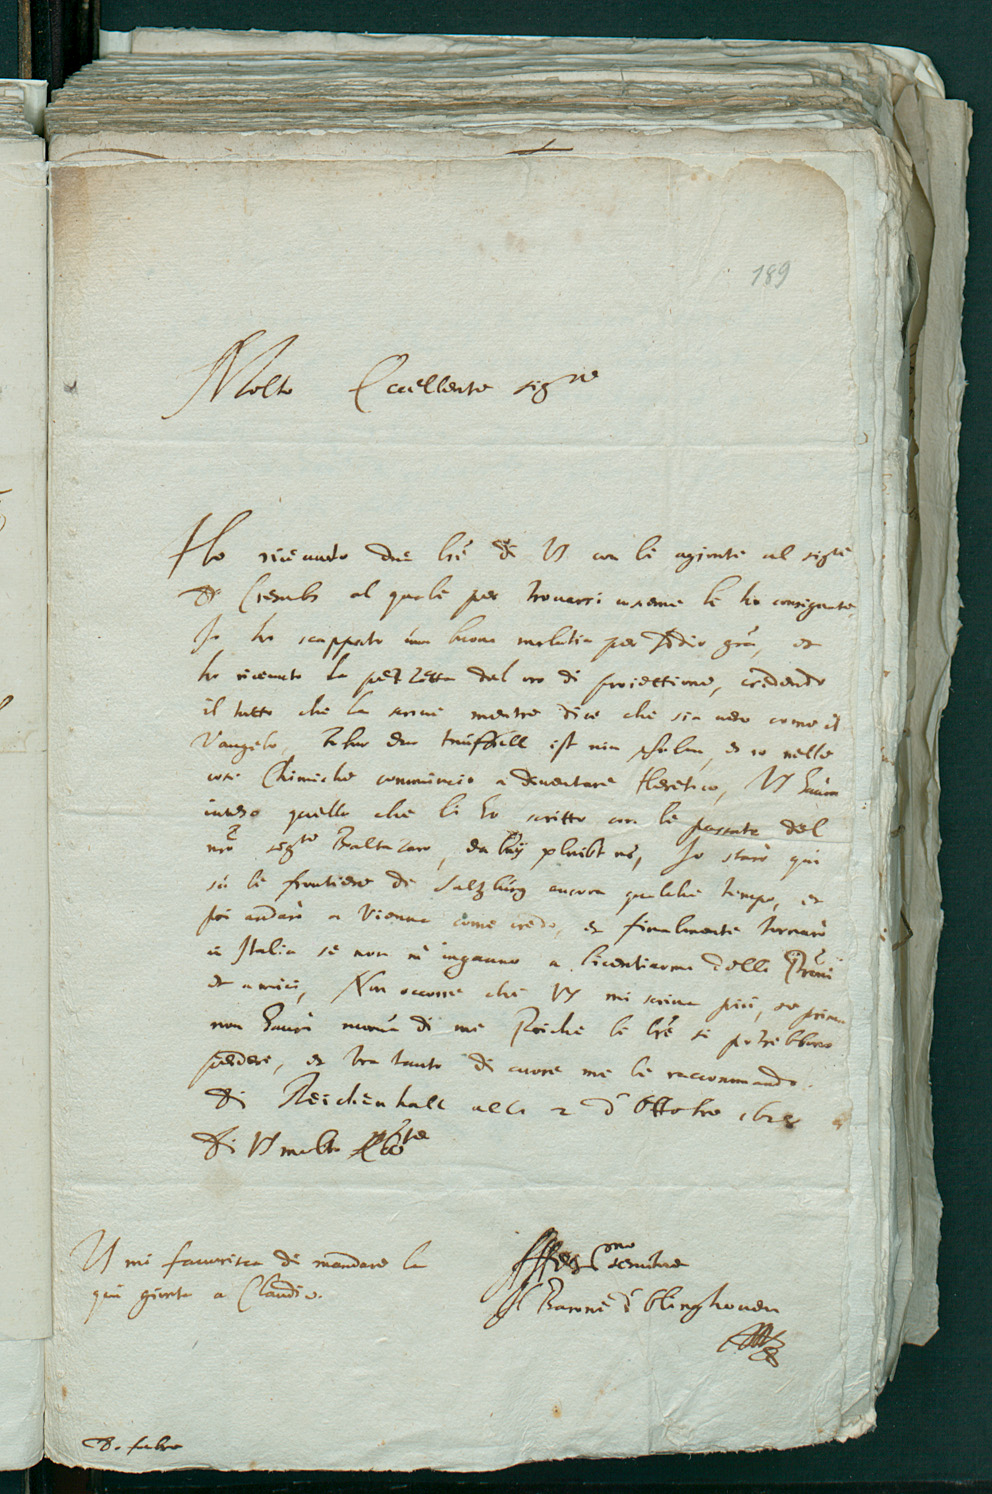 189
Molto Eccellente sig.re
Ho riceuuto due lre di VS con le agionte al sigre
di Crembs al quale per trouarsi insieme le ho consignate,
Io ho scappato una buona malatia per Iddio gra, et
ho riceuuto la pezzetta del oro di proiettione, credendo
il tutto che la scriue mentre dice che sia uero come il
Vangelo, den teuffell ist nin et io nelle
cose Chimiche commincio a diuentare Heretico, VS hauera
inteso quello che li ho scritto con le passate del
nro sigre Baltazaro, da bey pleibt es, Io staro qui
sù le frontiere di Saltzburg ancora qualche tempo, et
poi andarò a Vienna come credo, et finalmente tornarò
in Italia se non m'inganno a licentiarme delli Proni
et amici, Non occorre che VS mi scriua più, se prima
non hauera noua di me Perche le lre si potrebbero
perdere, et tra tanto di cuore me le raccommando.
Di Reichenhall alli 2 d'Ottobre 1628
Di VS molto Ecc.te
Aff.mo seruitore
Il Barone d'Oblinghouen
VS mi fauorisca di mandare la
qui gionta a Claudio.
S. fabro